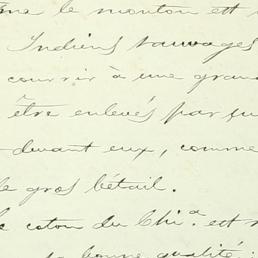 le mouton est
Indiens sauvages
courrir à une
être enlevés par
devant eux, comme
le gros bétail.
le coton du Chi.ª est
bonne qualité;